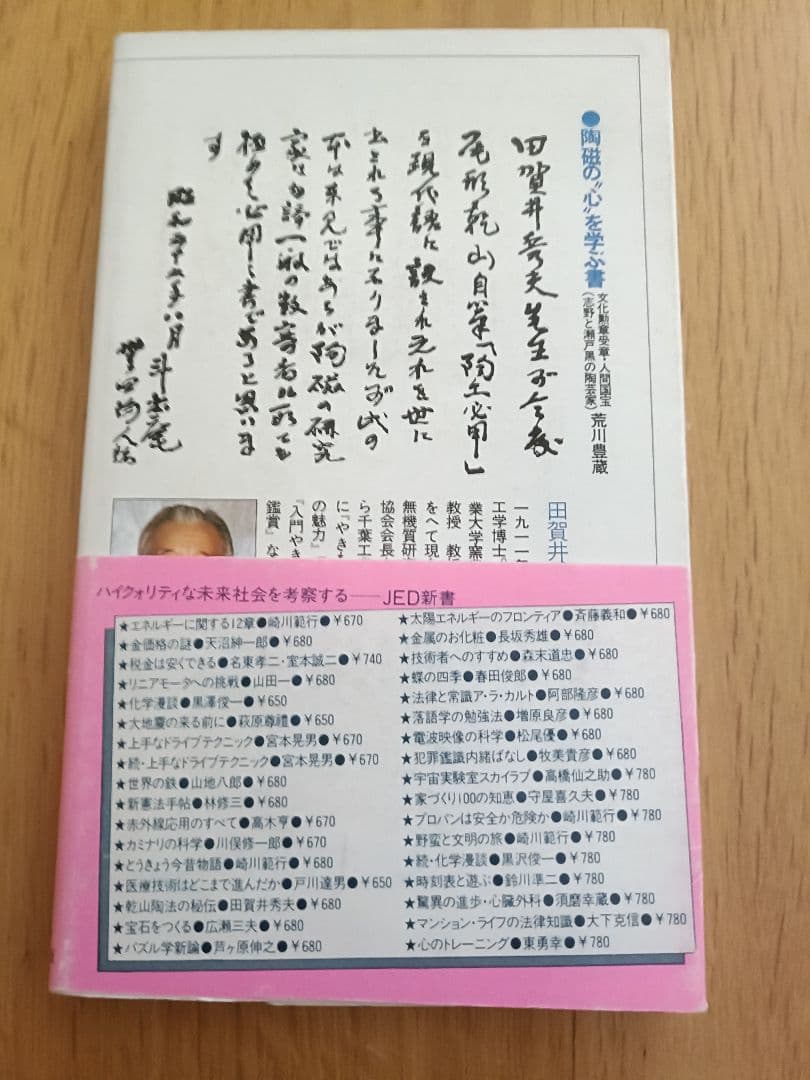 ●陶磁の"心"を学ぶ書
文化勲章受章・人間国宝
(志野と瀬戸黒の陶芸家)
荒川豊蔵
田賀井秀夫先生が今度
尾形乾山自筆「陶工必用」
を現代語に訳され之れを世に
出される事になりましたが此の
本は未見ではあるが陶磁の研究
家には勿論一般の数寄者に取ても
極めて必用之書であると思いま
す
昭和五十五年八月
斗出庵
田賀井
一九一一年
工学博士
業大学窯
教授
をへて現
無機質研
協会会長
ら千葉工
に『やき
の魅力』
『入門やき
鑑賞』な
ハイクォリティな未来社会を考察する──JED新書
★エネルギーに関する12章●崎川範行●￥670
★金価格の謎●天沼紳一郎●￥680
★税金は安くできる●名東孝二・室本誠二●￥740
★リニアモータへの挑戦●山田一●￥680
★化学漫談●黒澤俊一●￥650
★大地震の来る前に●萩原尊禮●￥650
★上手なドライブテクニック●宮本晃男●￥670
★続・上手なドライブテクニック●宮本晃男●￥670
★世界の鉄●山地八郎●￥680
★新憲法手帖●林修三●￥680
★赤外線応用のすべて●高木亨●￥670
★カミナリの科学●川俣修一郎●￥670
★とうきょう今昔物語●崎川範行●￥680
★医療技術はどこまで進んだか●戸川達男●￥650
★乾山陶法の秘伝●田賀井秀夫●￥680
★宝石をつくる●広瀬三夫●￥680
★パズル学新論●芦ヶ原伸之●￥680
★太陽エネルギーのフロンティア●斉藤義和●￥680
★金属のお化粧●長坂秀雄●￥680
★技術者へのすすめ●森末道忠●￥680
★蝶の四季●春田俊郎●￥680
★法律と常識ア・ラ・カルト●阿部隆彦●￥680
★落語学の勉強法●増原良彦●￥680
★電波映像の科学●松尾優●￥680
★犯罪鑑識内緒ばなし●牧美貴彦●￥680
★宇宙実験室スカイラブ●高橋仙之助●￥780
★家づくり100の知恵●守屋喜久夫●￥780
★プロパンは安全か危険か●崎川範行●￥780
★野蛮と文明の旅●崎川範行●￥780
★続・化学漫談●黒沢俊一●￥780
★時刻表と遊ぶ●鈴川準二●￥780
★驚異の進歩・心臓外科●須磨幸蔵●￥780
★マンション・ライフの法律知識●大下克信●￥780
★心のトレーニング●東勇幸●￥780